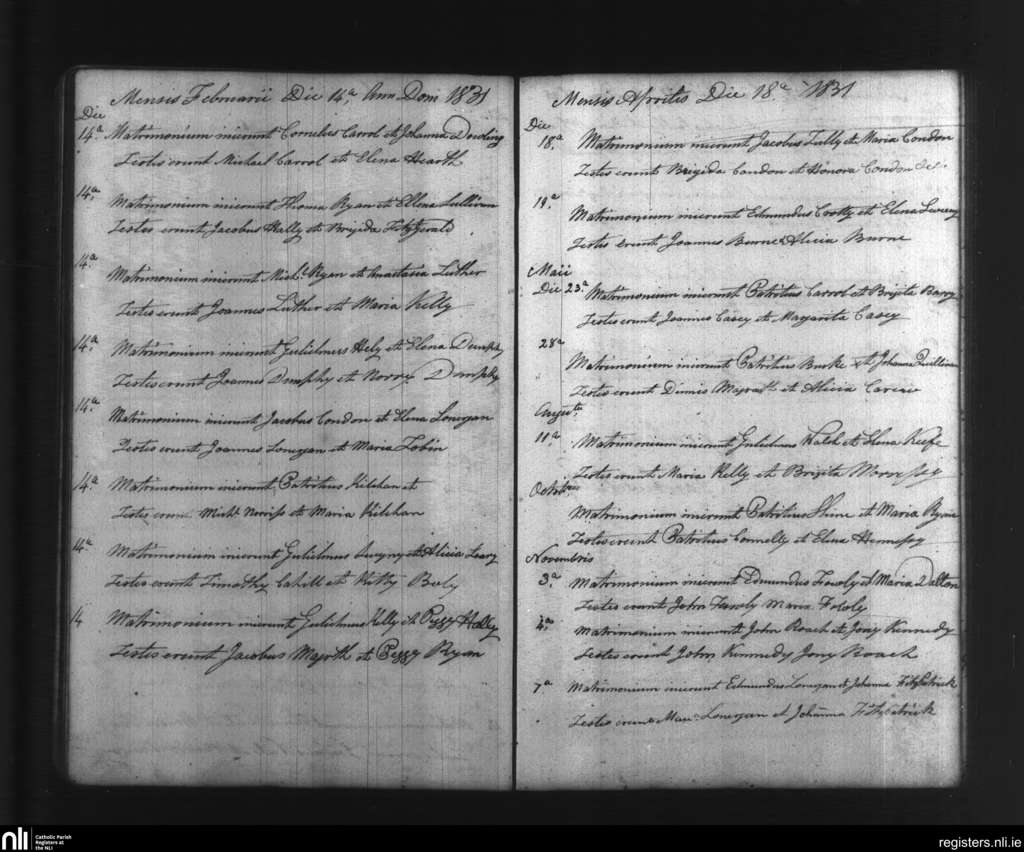 Mensis Februarii Die 14.a Ann Dom 1831
Die
14.a Matrimonium inierunt Cornelius Carrol et Johanna Dowling
Testes erunt Michael Carrol et Elena Hearth
14.a Matrimonium inierunt Thoma Ryan et Ellena
Testes erunt Jacobus Hally et Brigida Fitzgerald
14.a Matrimonium inierunt Michl. Ryan et Anastasia Luther
Testes erunt Joannes Luther et Maria Kelly
14.a Matrimonium inierunt Gulielmus Hely et Elena Dumphy
Testes erunt Joannes Dumphy et Norry Dumphy
14.a Matrimonium inierunt Jacobus Condon et Elena Lonergan
Testes erunt Joannes Lonergan et Maria Tobin
14.a Matrimonium inierunt Patritius Kilehan et
Testes erunt Michl Norriss et Maria Kilehan
14.a Matrimonium inierunt Gulielmus et Alicia Leary
Testes erunt Timothy Cahill et Kitty
14 Matrimonium inierunt Gulielmus Kelly et Peggy Hally
Testes erunt Jacobus Magrth et Peggy Ryan
Mensis Aprilis Die 18.a 1831
Die
18.a Matrimonium inierunt Jacobus Tully et Maria Condon
Testes erunt Brigida Condon et Honora Condon &c.
19.a Matrimonium inierunt Edmundus Crotty et Elena
Testes erunt Joannes Burne & Alicia Burne
Maii
Die 23.a Matrimonium inierunt Patritius Carrol et Brigita Barry
Testes erunt Joannes Casey et Margarita Casey
28a Matrimonium inierunt Patritius Burke et Johanna Quillinan
Testes erunt Dinnis Magrath et Alicia
Augusti
11.a Matrimonium inierunt Gulielmus Walsh et Elena Keefe
Testes erunt Maria Kelly et Brigita
Octobris
Matrimonium inierunt Patritius Shine et Maria Ryan
Testes erunt Patritius Connelly et Elena Hennessy
Novembris
3.a Matrimonium inierunt Edmundus Fowly et Maria Dalton
Testes erunt John Fowly Maria Fowly
4.a Matrimonium inierunt John Roach et Jony Kennedy
Testes erunt John Kennedy Jony Roach
7.a Matrimonium inierunt Edmundus Lonergan et Johanna Fitzpatrick
Testes erunt Lonergan et Johanna Fitzpatrick
nli Catholic Parish
Registers at
the NLI
registers.nli.ie